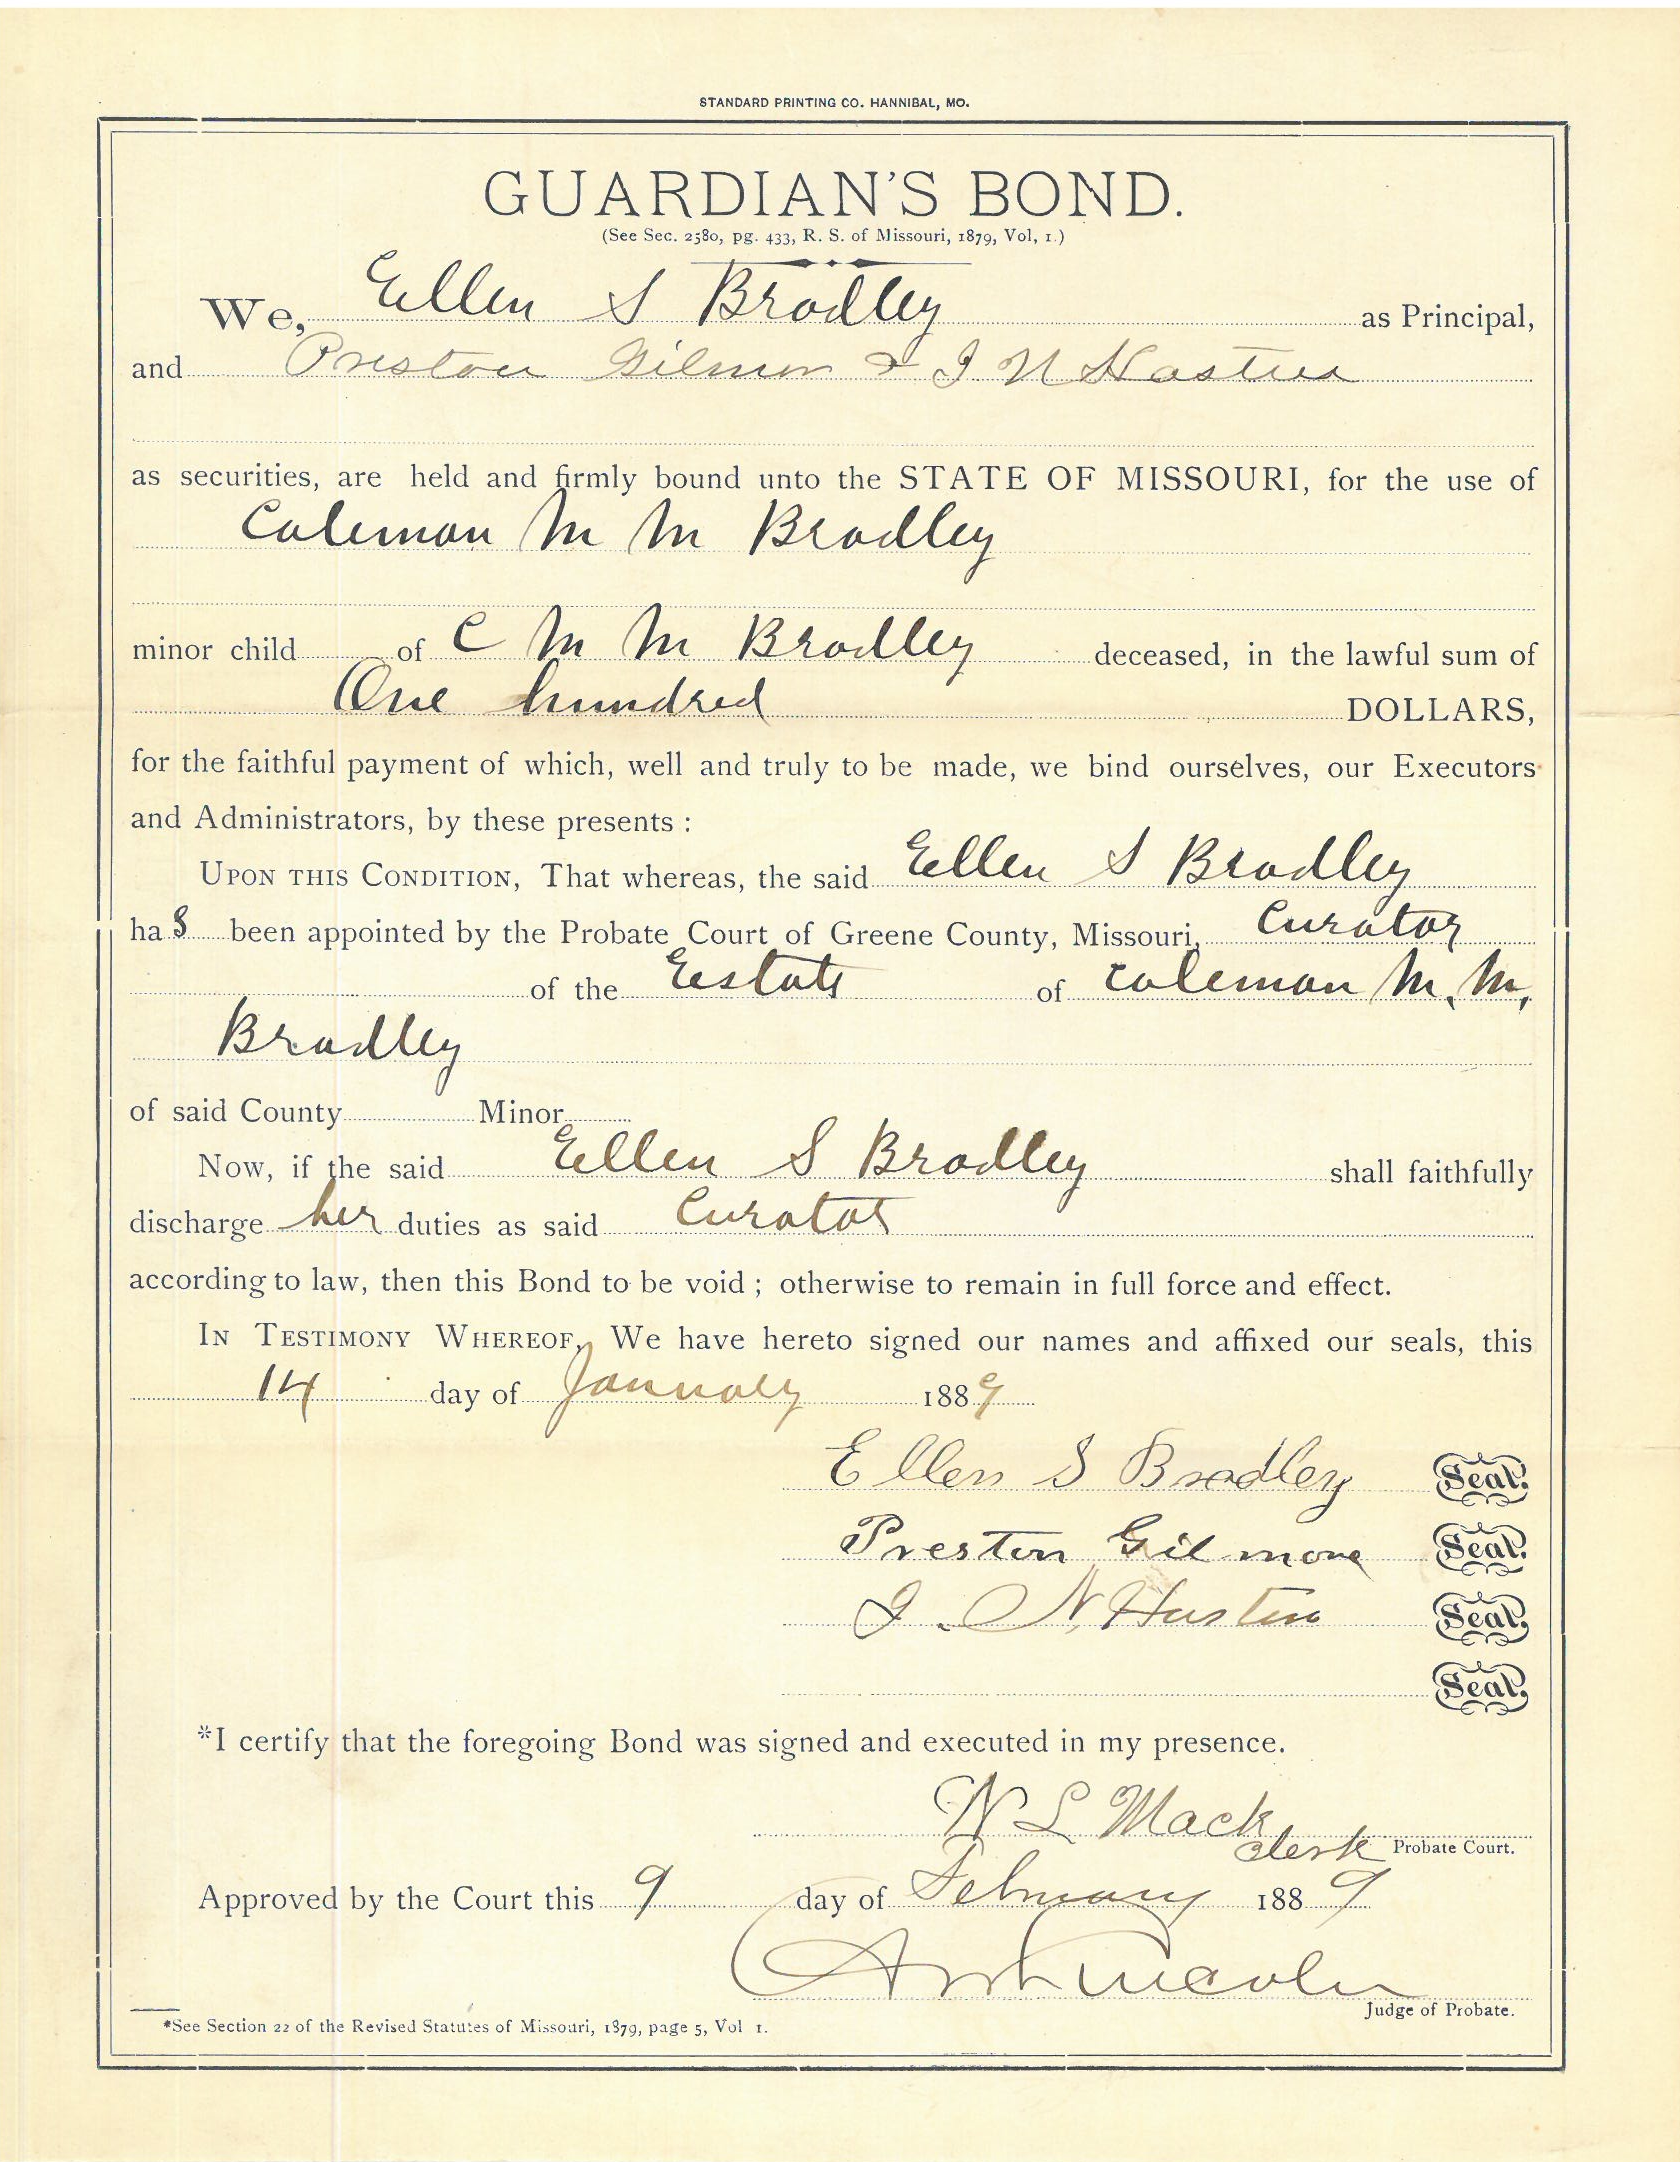 STANDARD PRINTING CO. HANNIBAL, MO.
GUARDIAN'S BOND.
(See Sec. 2580, pg. 433, R. S. of Missouri, 1879, Vol, 1.)
We, Ellen S Bradley as Principal,
and Preston Gilmor & J N
as securities, are held and firmly bound unto the STATE OF MISSOURI, for the use of
Coleman M M Bradley
minor child of C M M Bradley deceased, in the lawful sum of
One hundred DOLLARS,
for the faithful payment of which, well and truly to be made, we bind ourselves, our Executors
and Administrators, by these presents :
UPON THIS CONDITION, That whereas, the said Ellen S Bradley
has been appointed by the Probate Court of Greene County, Missouri, Curator
of the Estate of Coleman M. M.
Bradley
of said County Minor
Now, if the said Ellen S Bradley shall faithfully
discharge her duties as said Curator
according to law, then this Bond to be void ; otherwise to remain in full force and effect.
IN TESTIMONY WHEREOF, We have hereto signed our names and affixed our seals, this
14 day of January 1889
Ellen S Bradley Seal.
Preston Gilmore Seal.
J. N. Seal.
Seal.
*I certify that the foregoing Bond was signed and executed in my presence.
W L Mack
Clerk Probate Court.
Approved by the Court this 9 day of February 1889
Lincoln
Judge of Probate.
*See Section 22 of the Revised Statutes of Missouri, 1879, page 5, Vol 1.